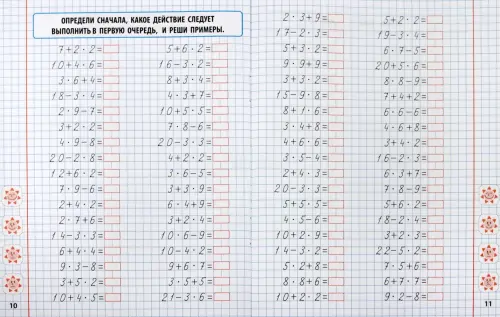 ОПРЕДЕЛИ СНАЧАЛА, КАКОЕ ДЕЙСТВИЕ СЛЕДУЕТ
ВЫПОЛНИТЬ В ПЕРВУЮ ОЧЕРЕДЬ, И РЕШИ ПРИМЕРЫ.
7+2·2=
10+4·6=
3·6+4=
18-3·4=
2·9-7=
3+2·2=
4·9-8=
20-2·8=
12+6·2=
7·9-6=
2+4·2=
2·7+6=
14-3·3=
6+4·4=
9·3-8=
3+4·2=
10+4·5=
5+6·2=
16-3·2=
8+3·4=
4·3+7=
10+5·5=
7·8-6=
20-3·3=
4+2·2=
3·6-5=
3+3·9=
6·4+9=
3+2·4=
10·6-9=
10-4·2=
9+6·7=
3+5+5=
21-3·6=
10
2·3+9=
17-2·3=
5+3·2=
9·9+9=
3+2·3=
15-9·8=
8+1·6=
3·4+8=
4+6·6=
3·5-4=
2+4·3=
20-3·3=
5+4·6=
4·5-5=
10+2·9=
14-3·2=
5·2+8=
8·8+6=
10+2·2=
5+2·2=
19-3·4=
6·7-5=
20+5·6=
8·8-9=
7+4+2=
6·6-6=
4·6+8=
3+4·2=
16-2·3=
6·3+7=
7·8-9=
5+2·6=
18-2·4=
3+2·3=
22-5·2=
7·5+6=
6+3·7=
9·2-8=
11